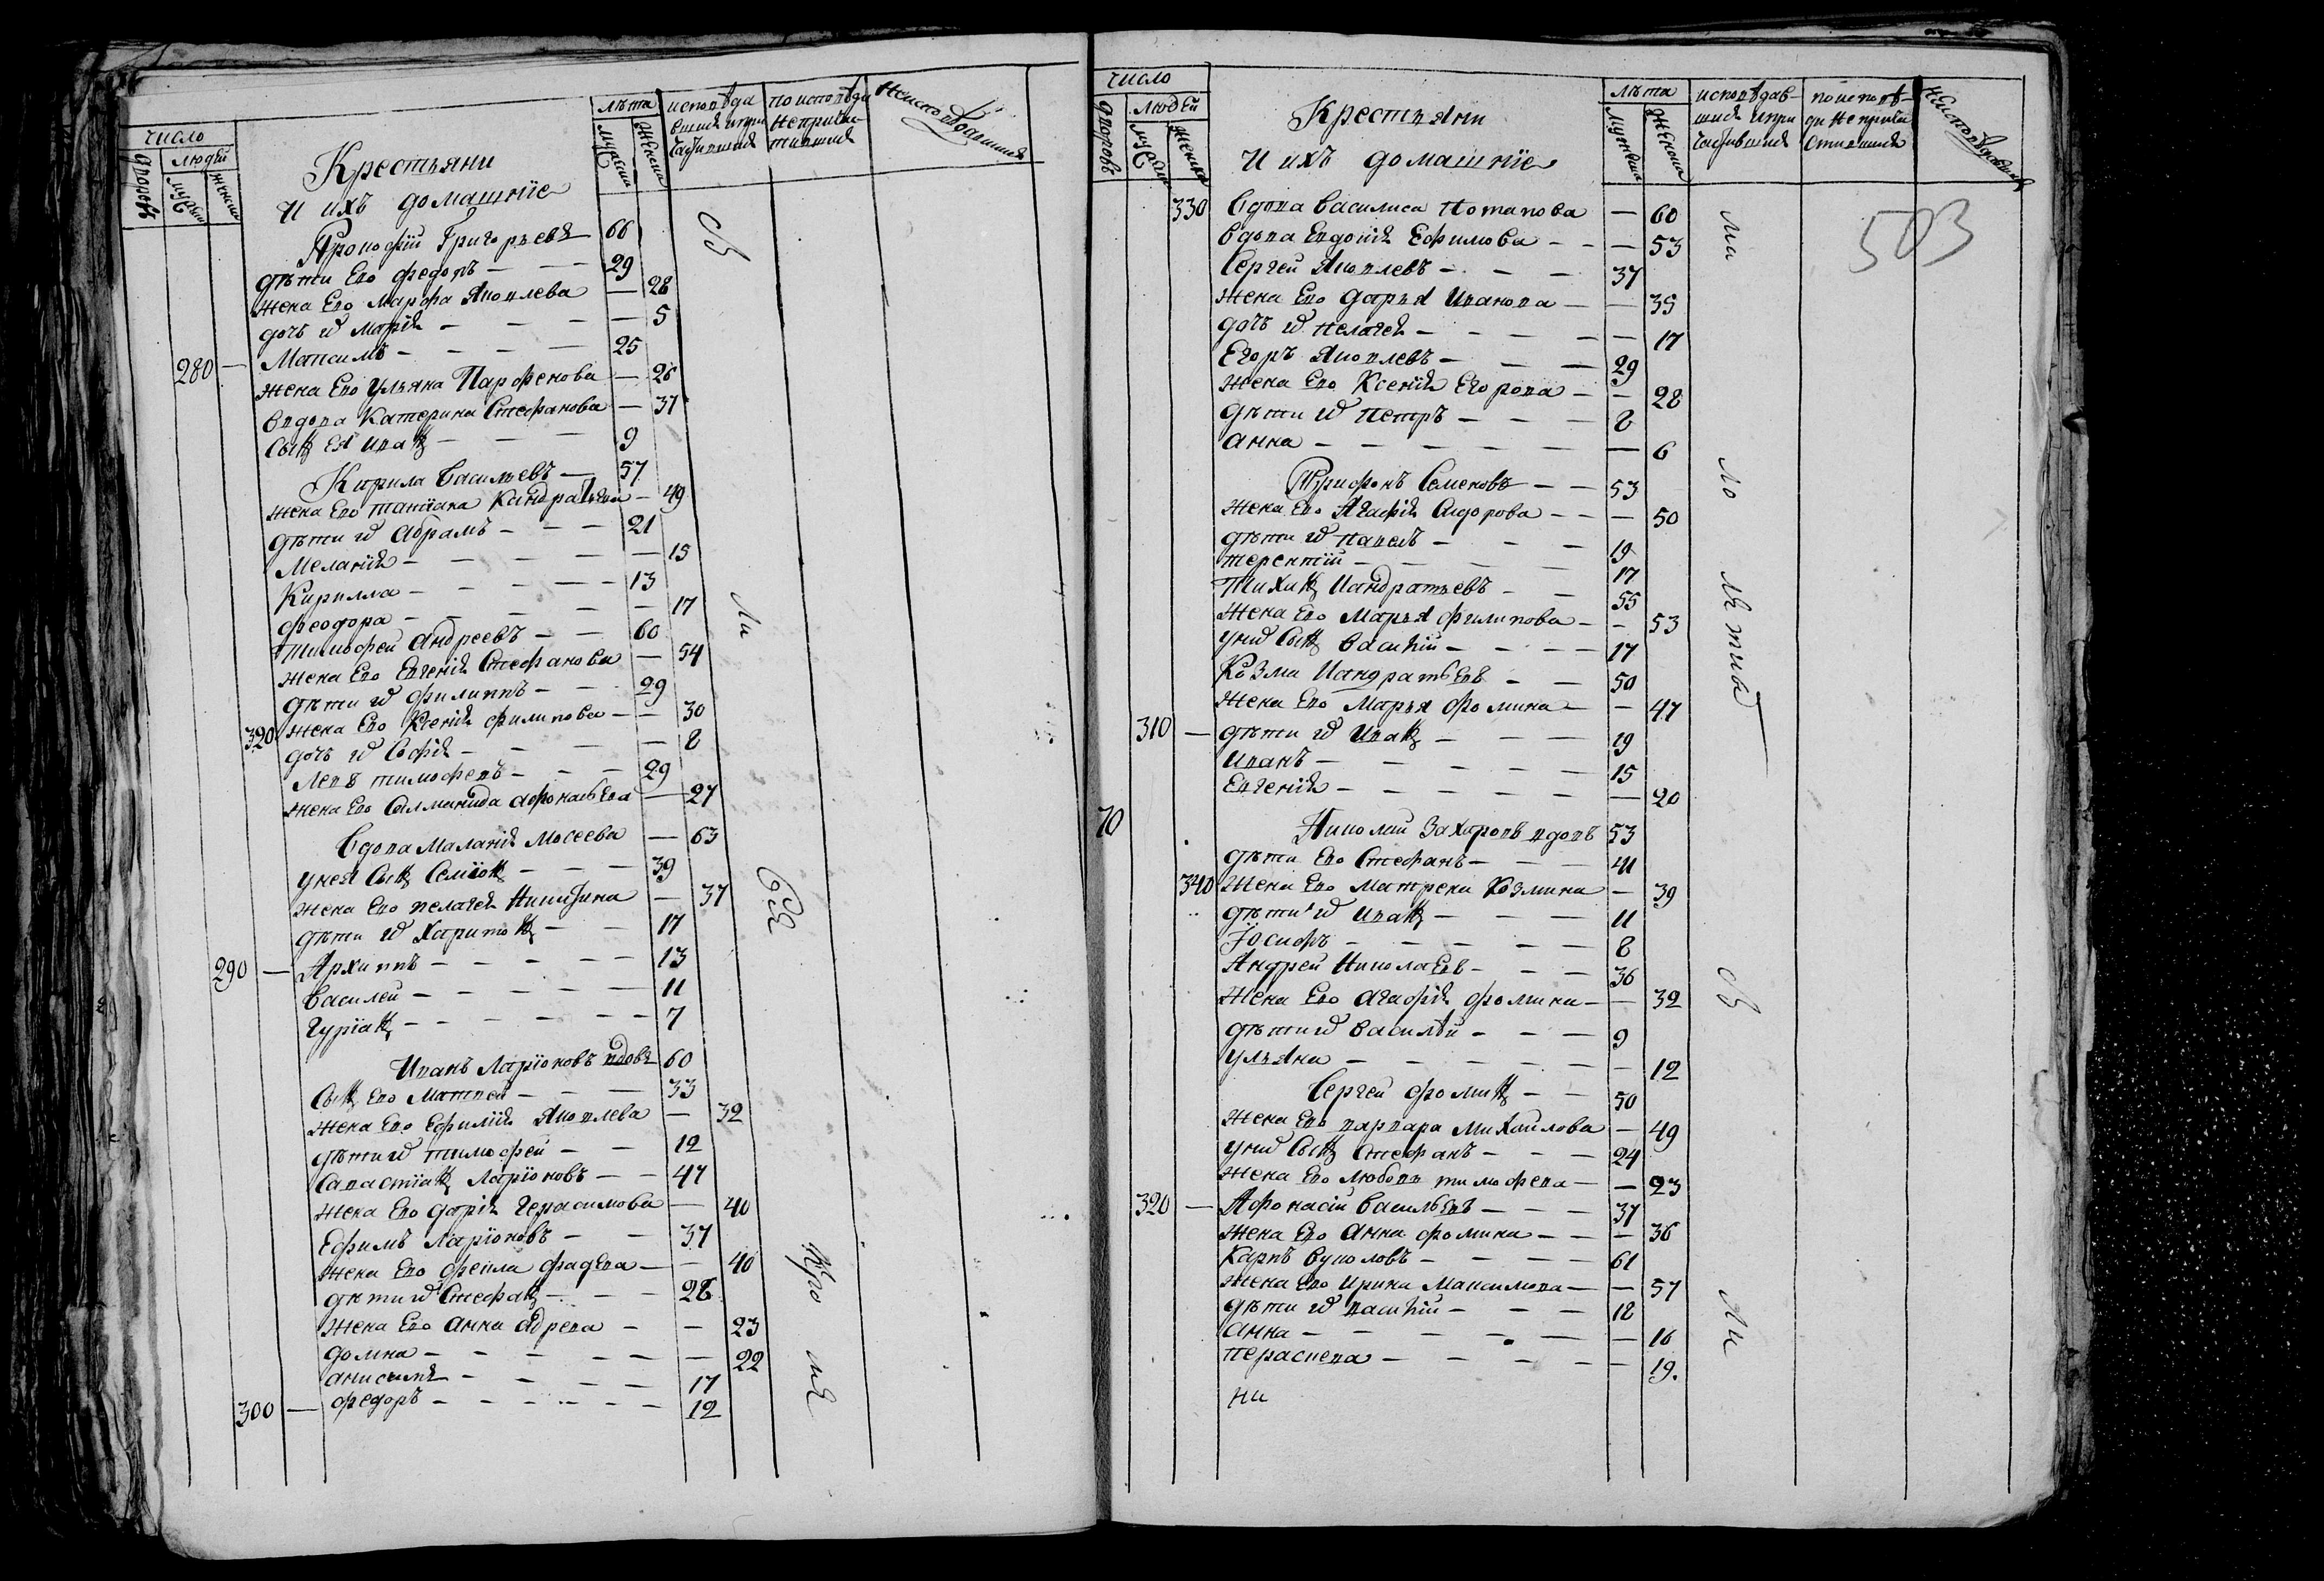 число
дворовъ
людей
мужеска
женска
Крестьяни
и ихъ домашнїе
лѣта
мужеска
женска
исповѣда
вшия и при
чащившия
по исповѣди
неприча
тившия
неисповѣдавшия
Прокофїй Григорьевъ 66
дѣти Его Федоръ — — — 29
жена Его Марфа Яковлева — 28
дочь их Марїя — — — 5
280 — Максимъ — — — 25
жена Его Ульяна Парфенова — 26
вдова Катерина Стефанова — 37
сын Ея Иван — — — 9
Кирила Васильевъ — 57
жена Его Татїана Кандратьева — 49
дѣти их Абрамъ — — — 21
Меланїя — — — — 15
Кирилла — — — — 13
Феодора — — — — 17
Тимофей Андреевъ — — 60
жена Его Евгенїя Стефанова — 54
дѣти их Филиппъ — — 29
320 жена Его Ксенїя Филипова — — 30
дочь их Софїя — — — — 8
Левъ Тимофеевъ — — — 29
жена Его Соломанида Афонасьева — 27
Вдова Маланїя Мосеева — 63
унея сын Семїон — — — 39
жена Его Пелагея Никитина — 37
дѣти их Харитон — — 17
290 — Архиппъ — — — — — 13
Василей — — — — — 11
Гурїан — — — — — — 7
Иванъ Ларїоновъ вдовъ 60
сын Его Матвей — — — 33
жена Его Ефимїя Яковлева — 32
дѣти их Тимофей — — 12
Савастїан Ларїоновъ — — 47
жена Его Дарїя Герасимова — 40
Ефимъ Ларїоновъ — — 37
жена Его Фекла Фадеева — — 40
дѣти их Стефан — — — 28
жена Его Анна Адреева — — 23
Домна — — — — — — 22
Анисимъ — — — — — 17
300 — Федоръ — — — — — — 12
число
дворовъ
людей
мужеска
женска
Крестьяни
и ихъ домашнїе
лѣта
мужеска
женска
исповѣдав-
шия и при
чащившия
по исповѣ-
ди неприча
стившия
неисповѣдавшия
503
330 Вдова Василиса Потапова — 60
вдова Евдокїя Ефимова — — — 53
Сергей Яковлевъ — — — 37
жена Его Дарья Иванова — — 35
дочь их Пелагея — — — — — 17
Егоръ Яковлевъ — — — 29
жена Его Ксенїя Егорова — — 28
дѣти их Петръ — — — 8
Анна — — — — — — — 6
Трифонъ Семеновъ — — 53
жена Его Агафїя Сидорова — — — 50
дѣти их Павелъ — — — 19
Терентїй — — — — — 17
Тихин Кандратьевъ — — 55
жена Его Марья Филипова — — 53
уних сын Василїй — — — — 17
Козма Кандратьевъ — — 50
жена Его Марья Фомина — — 47
310 — дѣти их Иван — — — 19
Иванъ — — — — — — 15
Евгенїя — — — — — — 20
70 Николай Захаровъ вдовъ 53
дѣти Его Стефанъ — — — 41
340 жена Его Матрена Козмина — 39
дѣти их Иван — — — — 11
Їосифъ — — — — — 8
Андрей Николаевъ — — — 36
жена Его Агафїя Фомина — — 32
дѣти их Василей — — — 9
Ульяна — — — — — — 12
Сергей Фомин — — 50
жена Его Варвара Михаилова — 49
уних сын Стефанъ — — — 24
жена Его Любовь Тимофеева — — 23
320 — Афонасїй Васильевъ — — — 37
жена Его Анна Фомина — — — 36
Карпъ Вуколовъ — — — — 61
жена Его Ирина Максимова — — 57
дѣти их Василїй — — — 18
Анна — — — — — — 16
Параскева — — — — — 19.
ни